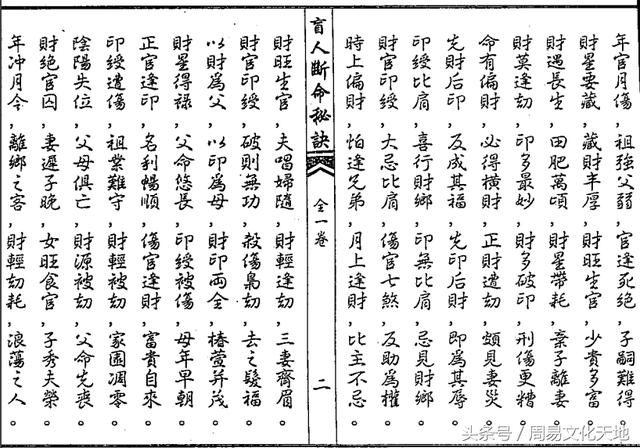 年官月傷,祖強父弱,官逢死絕,子嗣難得。
財星要藏,藏財丰厚,財旺生官,少貴多富。
財遇長生,田肥萬頃,財星帶耗,棄子離妻。
財莫逢劫,印多最妙,財多破印,刑傷更糟。
命有偏財,必得橫財,正財遭劫,頗見妻災。
先財后印,反成其福,先印后財,即為其辱。
印綬比肩,喜行財鄉,印無比肩,忌見財鄉。
財官印綬,大忌比肩,傷官七煞,反助為權。
時上偏財,怕逢兄弟,月上逢財,比主不忌。
盲人斷命秘訣 全一卷 二
財旺生官,夫唱婦隨,財輕逢劫,三妻齊眉。
財官印綬,破則無功,殺傷梟劫,去之發福。
以財為父,以印為母,財印兩全,椿萱并茂。
財星得祿,父命悠長,印綬被傷,母年早朝。
正官逢印,名利暢順,傷官逢財,富貴自來。
印綬遭傷,祖業難守,財輕被劫,家園凋零。
陰陽失位,父母俱亡,財源被劫,父命先喪。
財絕官囚,妻遲子晚,女旺食官,子秀夫榮。
年冲月令,離鄉之客,財輕劫耗,浪蕩之人。
头条号 / 周易文化天地